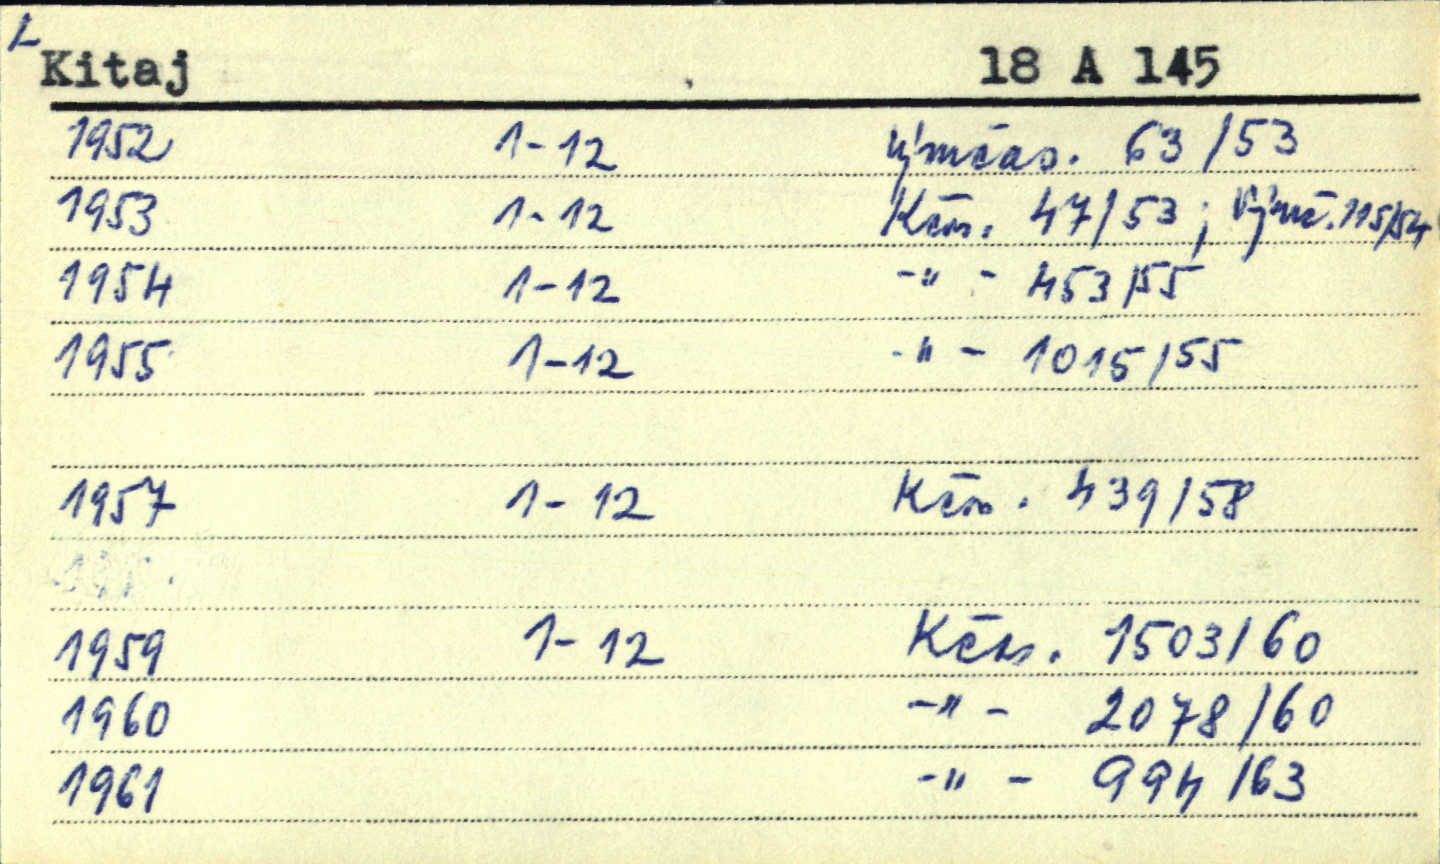 L
Kitaj 18 A 145
1952 1-12 Výměčas. 63/53
1953 1-12 Kčs. 47/53; Výmě. 115/54
1954 1-12 -"- 453/55
1955 1-12 -"- 1015/55
1957 1-12 Kčs. 439/58
1959 1-12 Kčs. 1503/60
1960 -"- 2078/60
1961 -"- 994/63